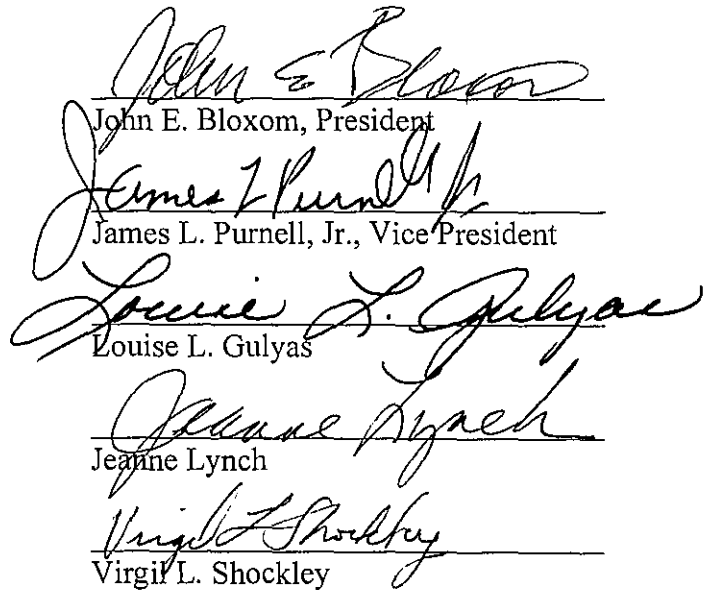 John E Bloxom
John E. Bloxom, President
James L Purnell Jr
James L. Purnell, Jr., Vice President
Louise L. Gulyas
Louise L. Gulyas
Jeanne Lynch
Jeanne Lynch
Virgil L Shockley
Virgil L. Shockley